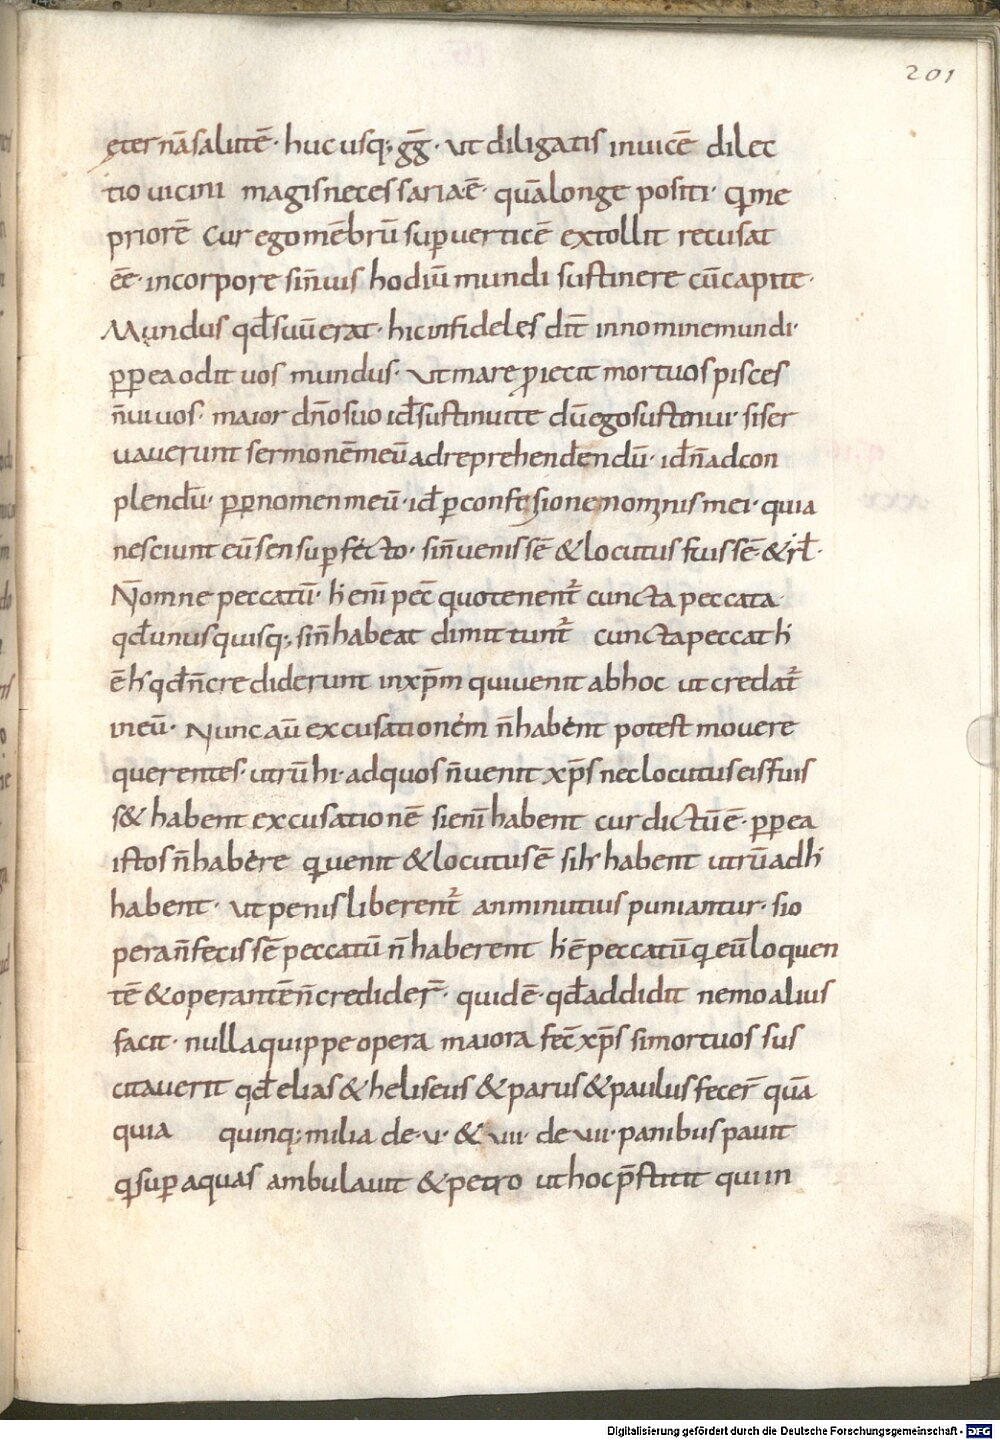 201
ęternā salutē · huc usq; gḡ · ut diligatis inuicē dilec
tio uicini magis necessaria ē · quā longe positi · q̄ me
priorē cur ego mēbrū suꝑ uerticē extollit recusat
ēe · in corpore si n̄ uis hodiū mundi sustinere cū capite ·
Mundus qd̄ suū erat · hic infideles dic̄ in nomine mundi ·
ꝓꝑea odit uos mundus · ut mare ꝓiecit mortuos pisces
n̄ uiuos · maior dn̄o suo id̄ sustinuite dū ego sustinui · si ser
uauerunt sermonē meū ad reprehendendū · id̄ n̄ ad con
plendū · ꝓꝑ nomen meū · id̄ ꝑ confessione nominis mei · quia
nesciunt eū sensu ꝑfecto · si n̄ uenissē & locutus fuissē & rl̄ ·
N̄ omne peccatū · h̄ enī pec̄ quo tenent᷑ cuncta peccata
qd̄ unusquisq; si n̄ habeat dimittunt᷑ cuncta peccat h̄
ē h̄ qd̄ n̄ crediderunt in xp̄m qui uenit ab hoc ut credat᷑
in eū · Nunc aū excusationem n̄ habent potest mouere
querentes · utrū hi · ad quos n̄ uenit xp̄s nec locutus eis fuis
s& habent excusationē si enī habent cur dictū ē · ꝓꝑea
istos n̄ habere q̄ uenit & locutus ē si h̄ habent utrū ad h̄
habent · ut penis liberent᷑ an minutius puniantur · si o
pera n̄ fecissē peccatū n̄ haberent h̄ ē peccatū q̄ eū loquen
tē & operantē n̄ credider̄ · quid ē · qd̄ addidit nemo alius
facit · nulla quippe opera maiora fec̄ xp̄s si mortuos sus
citauerit qd̄ elias & heliseus & parus & paulus fecer̄ quā
quia quinq; milia de · v · & vii · de vii · panibus pauit
q̄ suꝑ aquas ambulauit & petro ut hoc p̄stitit qui in
Digitalisierung gefördert durch die Deutsche Forschungsgemeinschaft - DFG